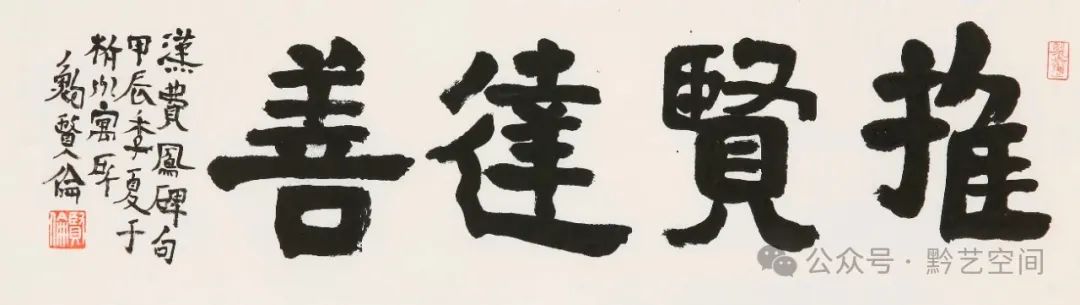 推賢達善
漢費鳳碑句
甲辰季夏于
寓所
賢倫
賢倫
公众号 · 黔艺空间